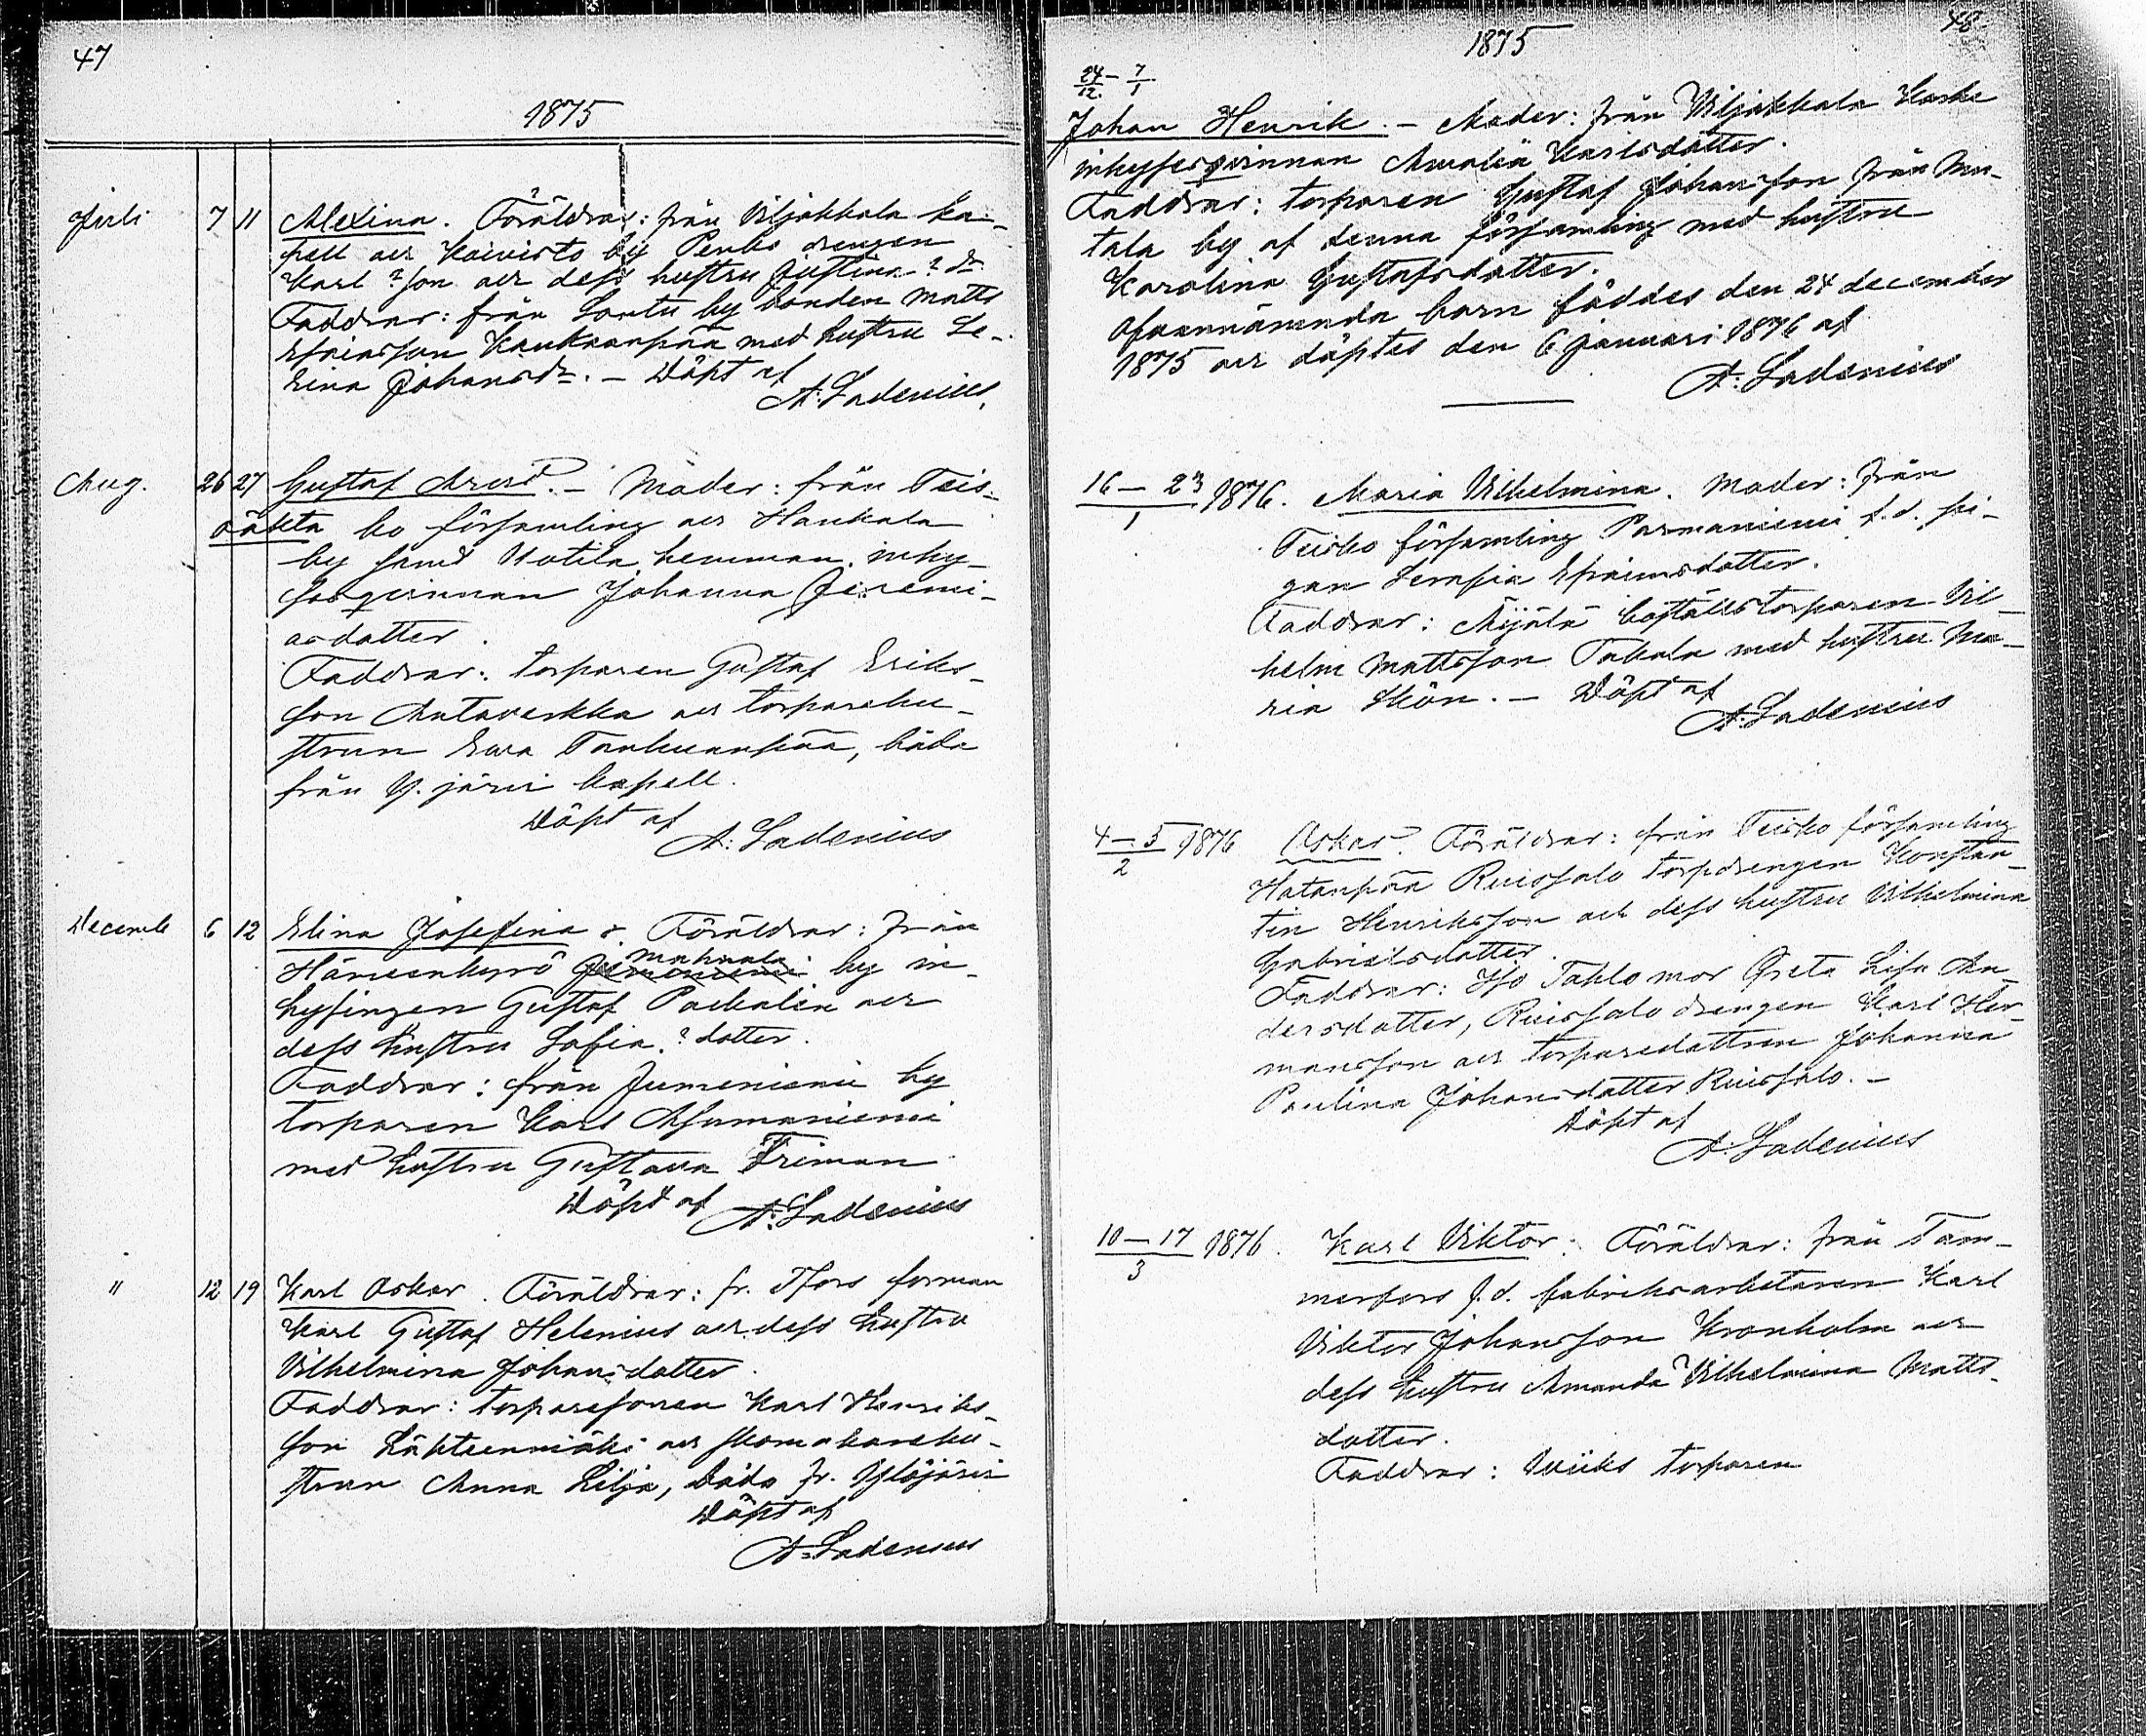 47
1875
Juli 7 11 Alexina. Föräldrar: från Viljakkala ka-
pell och Koivisto by Penko drengen
Karl ? son och dess hustru Justina ? dr
Faddrar: från Sontu by bonden Matts
Efraimsson Kaukaanpää med hustru Se-
rina Johansdr. – Döpt af
A. Ladenius.
Aug. 26 27 Gustaf Arvid. – Moder: från Teis-
oäkta ko församling och Haukala
by samt Uotila hemman inhy-
sesqvinnan Johanna Jeremi-
asdotter.
Faddrar: torparen Gustaf Eriks-
son Antaverkka och torparehu-
strun Ewa Tanhuanpää, båda
från Y. järvi kapell.
Döpt af
A. Ladenius
Decemb 6 12 Elina Josefina. Föräldrar: från
Mahnala
Hämeenkyrö Jumeniemi by in-
hysingen Gustaf Packalén och
dess hustru Sofia ? dotter.
Faddrar: från Jumeniemi by
torparen Karl
med hustru Gustava Friman
Döpt af A. Ladenius
" 12 19 Karl Oskar. Föräldrar: fr. Tfors forman
Karl Gustaf Helenius och dess hustru
Vilhelmina Johansdotter.
Faddrar: torparesonen Karl Henriks-
son Lähteenmäki och skomakarehu-
strun Anna Lilja, båda fr. Ylöjärvi
Döpt af
A. Ladenius
48
1875
24/12. – 7/1
Johan Henrik. – Moder: från Viljakkala Kaske
inhysesqvinnan Amalia Karlsdotter.
Faddrar: torparen Gustaf Johansson från Mu-
tala by af denna församling med hustru
Karolina Gustafsdotter.
Ofvannämnda barn föddes den 24 december
1875 och döptes den 6 januari 1876 af
A. Ladenius
16 – 23/1 1876. Maria Vilhelmina. Moder: från
Teisko församling Parmaniemi f.d. pi-
gan Serafia Efraimsdotter.
Faddrar: Äijälä boställstorparen Vil-
helm Mattsson Takala med hustru Ma-
ria Skön. – Döpt af
A. Ladenius
4 – 5/2 1876 Oskar. Föräldrar: från Teisko församling
Hatanpää Ruissalo torpdrengen Konstan-
tin Henriksson och dess hustru Vilhelmina
Gabrielsdotter.
Faddrar: Yso Tahlo mor Greta Lisa An-
dersdotter, Ruissalo drengen Karl Her-
mansson och torparedottren Johanna
Paulina Johansdotter Ruissalo. –
Döpt af
A. Ladenius
10 – 17/3 1876. Karl Viktor. Föräldrar: från Tam-
merfors f.d. fabriksarbetaren Karl
Viktor Johansson Kronholm och
dess hustru Amanda Vilhelmina Matts-
dotter.
Faddrar: Wiiks torparen